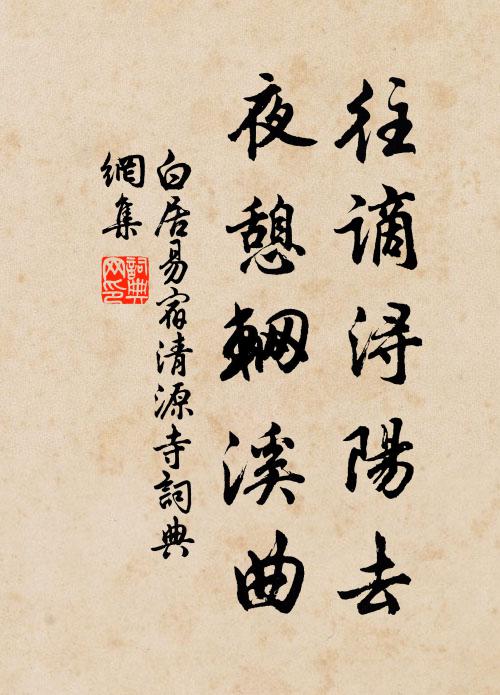 往謫潯陽去
夜憩輞溪曲
白居易宿清源寺詞典
網集
詞典
网印